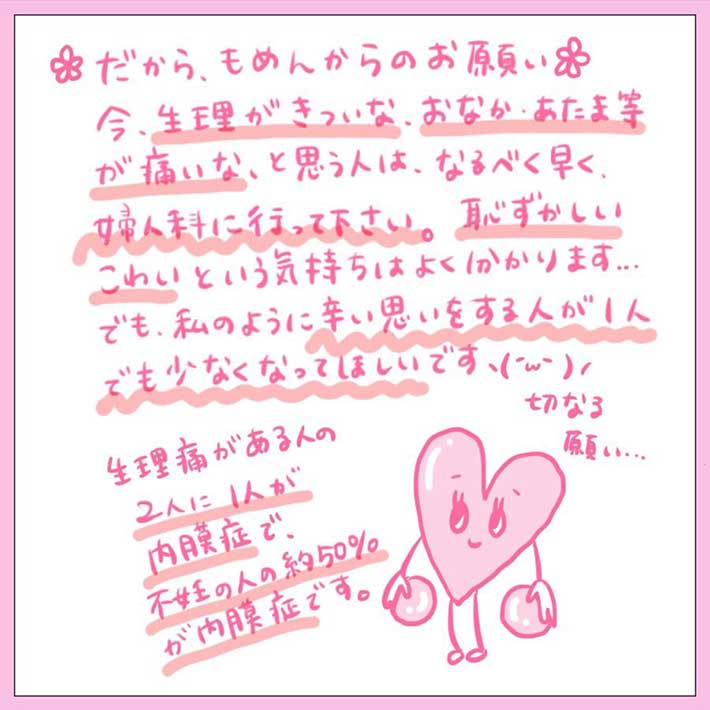 だから、もめんからのお願い
今、生理がきついな、おなか・あたま等
が痛いな、と思う人は、なるべく早く、
婦人科に行って下さい。恥ずかしい
こわいという気持ちはよく分かります...
でも、私のように辛い思いをする人が1人
でも少なくなってほしいです、(´ω`)ノ
切なる
願い...
生理痛がある人の
2人に1人が
内膜症で、
不妊の人の約50%
が内膜症です。